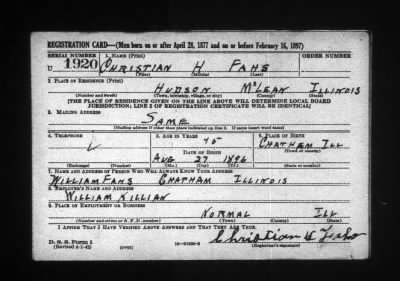 REGISTRATION CARD—(Men born on or after April 28, 1877 and on or before February 16, 1897)
SERIAL NUMBER 1. NAME (Print) ORDER NUMBER
U 1920 CHRISTIAN H FAHS
(First) (Middle) (Last)
2. PLACE OF RESIDENCE (Print)
HUDSON McLEAN ILLINOIS
(Number and street) (Town, township, village, or city) (County) (State)
[THE PLACE OF RESIDENCE GIVEN ON THE LINE ABOVE WILL DETERMINE LOCAL BOARD
JURISDICTION; LINE 2 OF REGISTRATION CERTIFICATE WILL BE IDENTICAL]
3. MAILING ADDRESS
SAME
[Mailing address if other than place indicated on line 2. If same insert word same]
4. TELEPHONE 5. AGE IN YEARS 6. PLACE OF BIRTH
45 CHATHEM ILL
DATE OF BIRTH
AUG 27 1896
(Exchange) (Number) (Mo.) (Day) (Yr.) (State or country)
7. NAME AND ADDRESS OF PERSON WHO WILL ALWAYS KNOW YOUR ADDRESS
WILLIAM FAHS CHATHAM ILLINOIS
8. EMPLOYER'S NAME AND ADDRESS
WILLIAM KILLIAN
9. PLACE OF EMPLOYMENT OR BUSINESS
NORMAL ILL
(Number and street or R. F. D. number) (Town) (County) (State)
I AFFIRM THAT I HAVE VERIFIED ABOVE ANSWERS AND THAT THEY ARE TRUE.
D. S. S. Form 1
(Revised 4-1-42) (over) Christian H Fahs
(Registrant's signature)